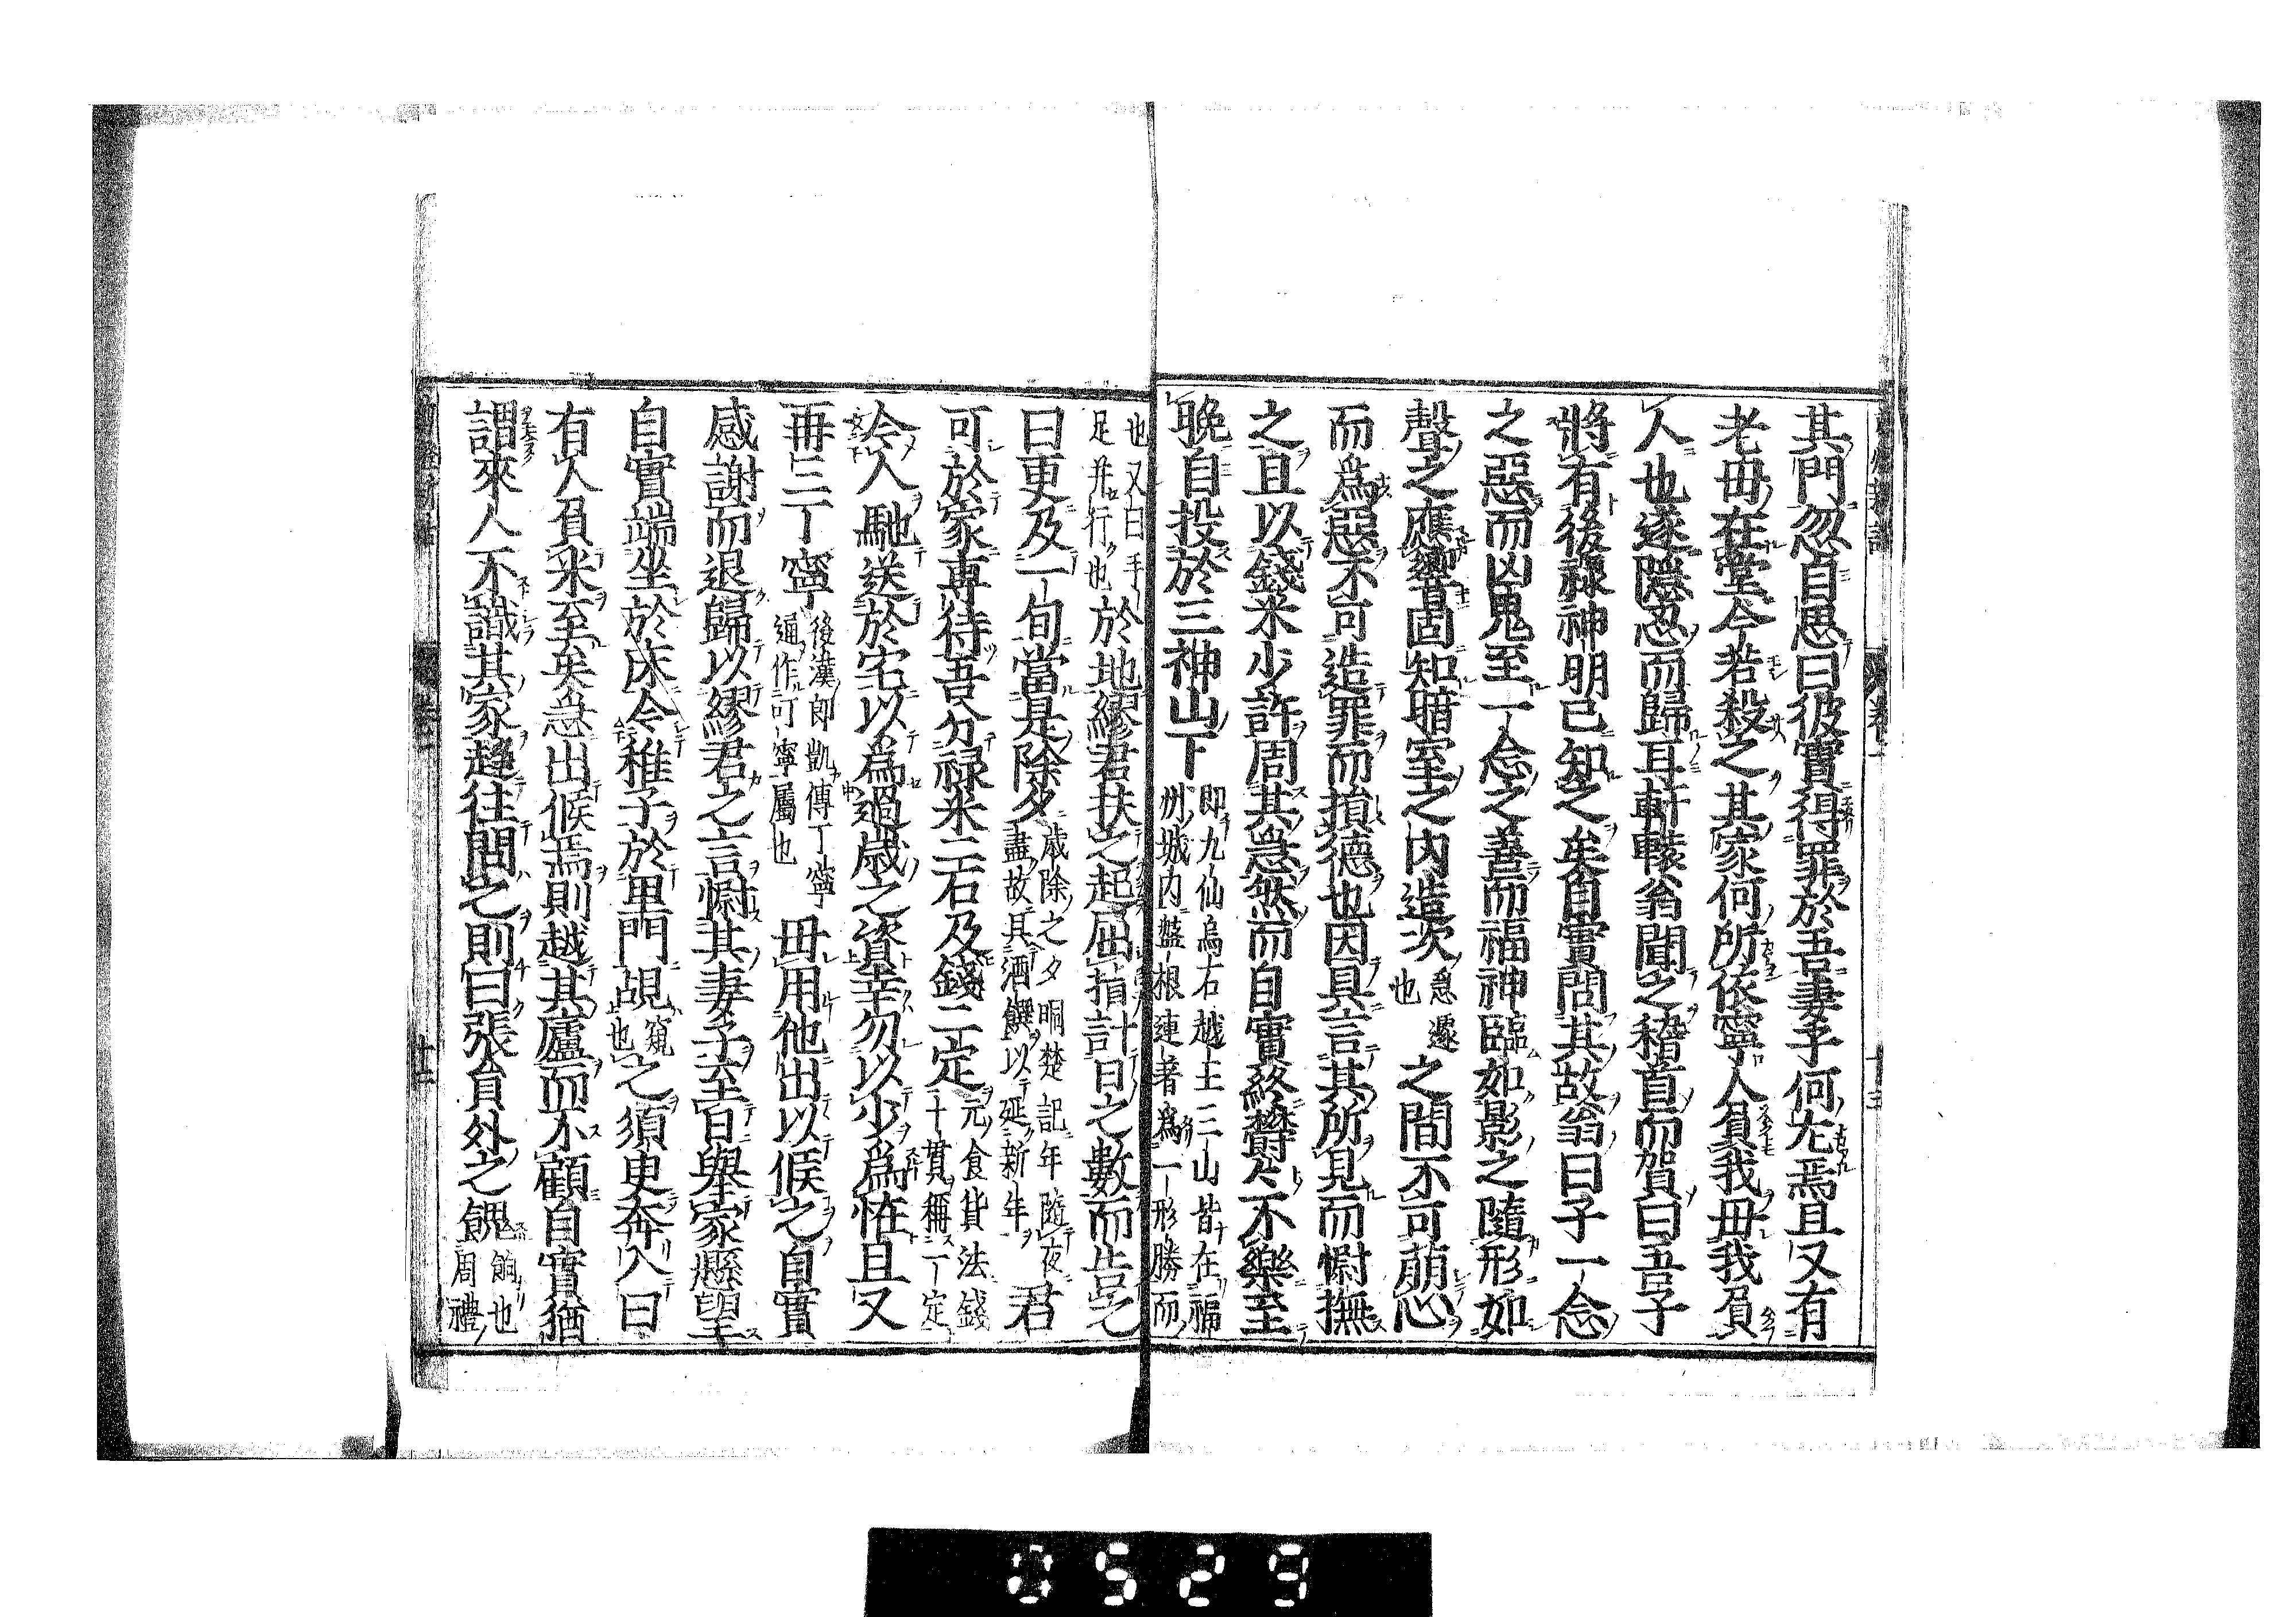 其門忽自思曰彼實得罪於吾妻子何尤焉且又有
老母在堂今若殺之其家何所依寧人負我毋我負
人也遂隱忍而歸耳軒轅翁聞之稽首而賀曰吾子
將有後祿神明已知之矣自實問其故翁曰子一念
之惡而凶鬼至一念之善而福神臨如影之隨形如
聲之應響固知暗室之內造次急遽也之間不可萌心
而爲惡不可造罪而損德也因具言其所見而慰撫
之且以錢米少許周其急然而自實終鬱々不樂至
晚自投於三神山下即九仙烏石越王三山皆在福州城内盤根連著爲一形勝而
也又曰手足并行也於地繆君扶之起屈指計日之數而告之
曰更及一旬當是除夕歳除之夕晍楚記年隨夜盡故具酒饌以延新年君
可於家專待吾分祿米二石及錢二定元食貨法錢十貫稱一定
令人馳送於宅以爲過歳之資幸勿以少爲怪且又
再三丁寧後漢郎凱傳丁寧逼作叮嚀屬也毋用他出以候之自實
感謝而退歸以繆君之言慰其妻子至日舉家懸望
自實端坐於床令稚子於里門覘窺也之須臾奔入曰
有人負米至矣急出候焉則越其廬而不顧自實猶
謂來人不識其家趨往問之則曰張員外之餽餉也周禮
卷一
十三
十二
0529